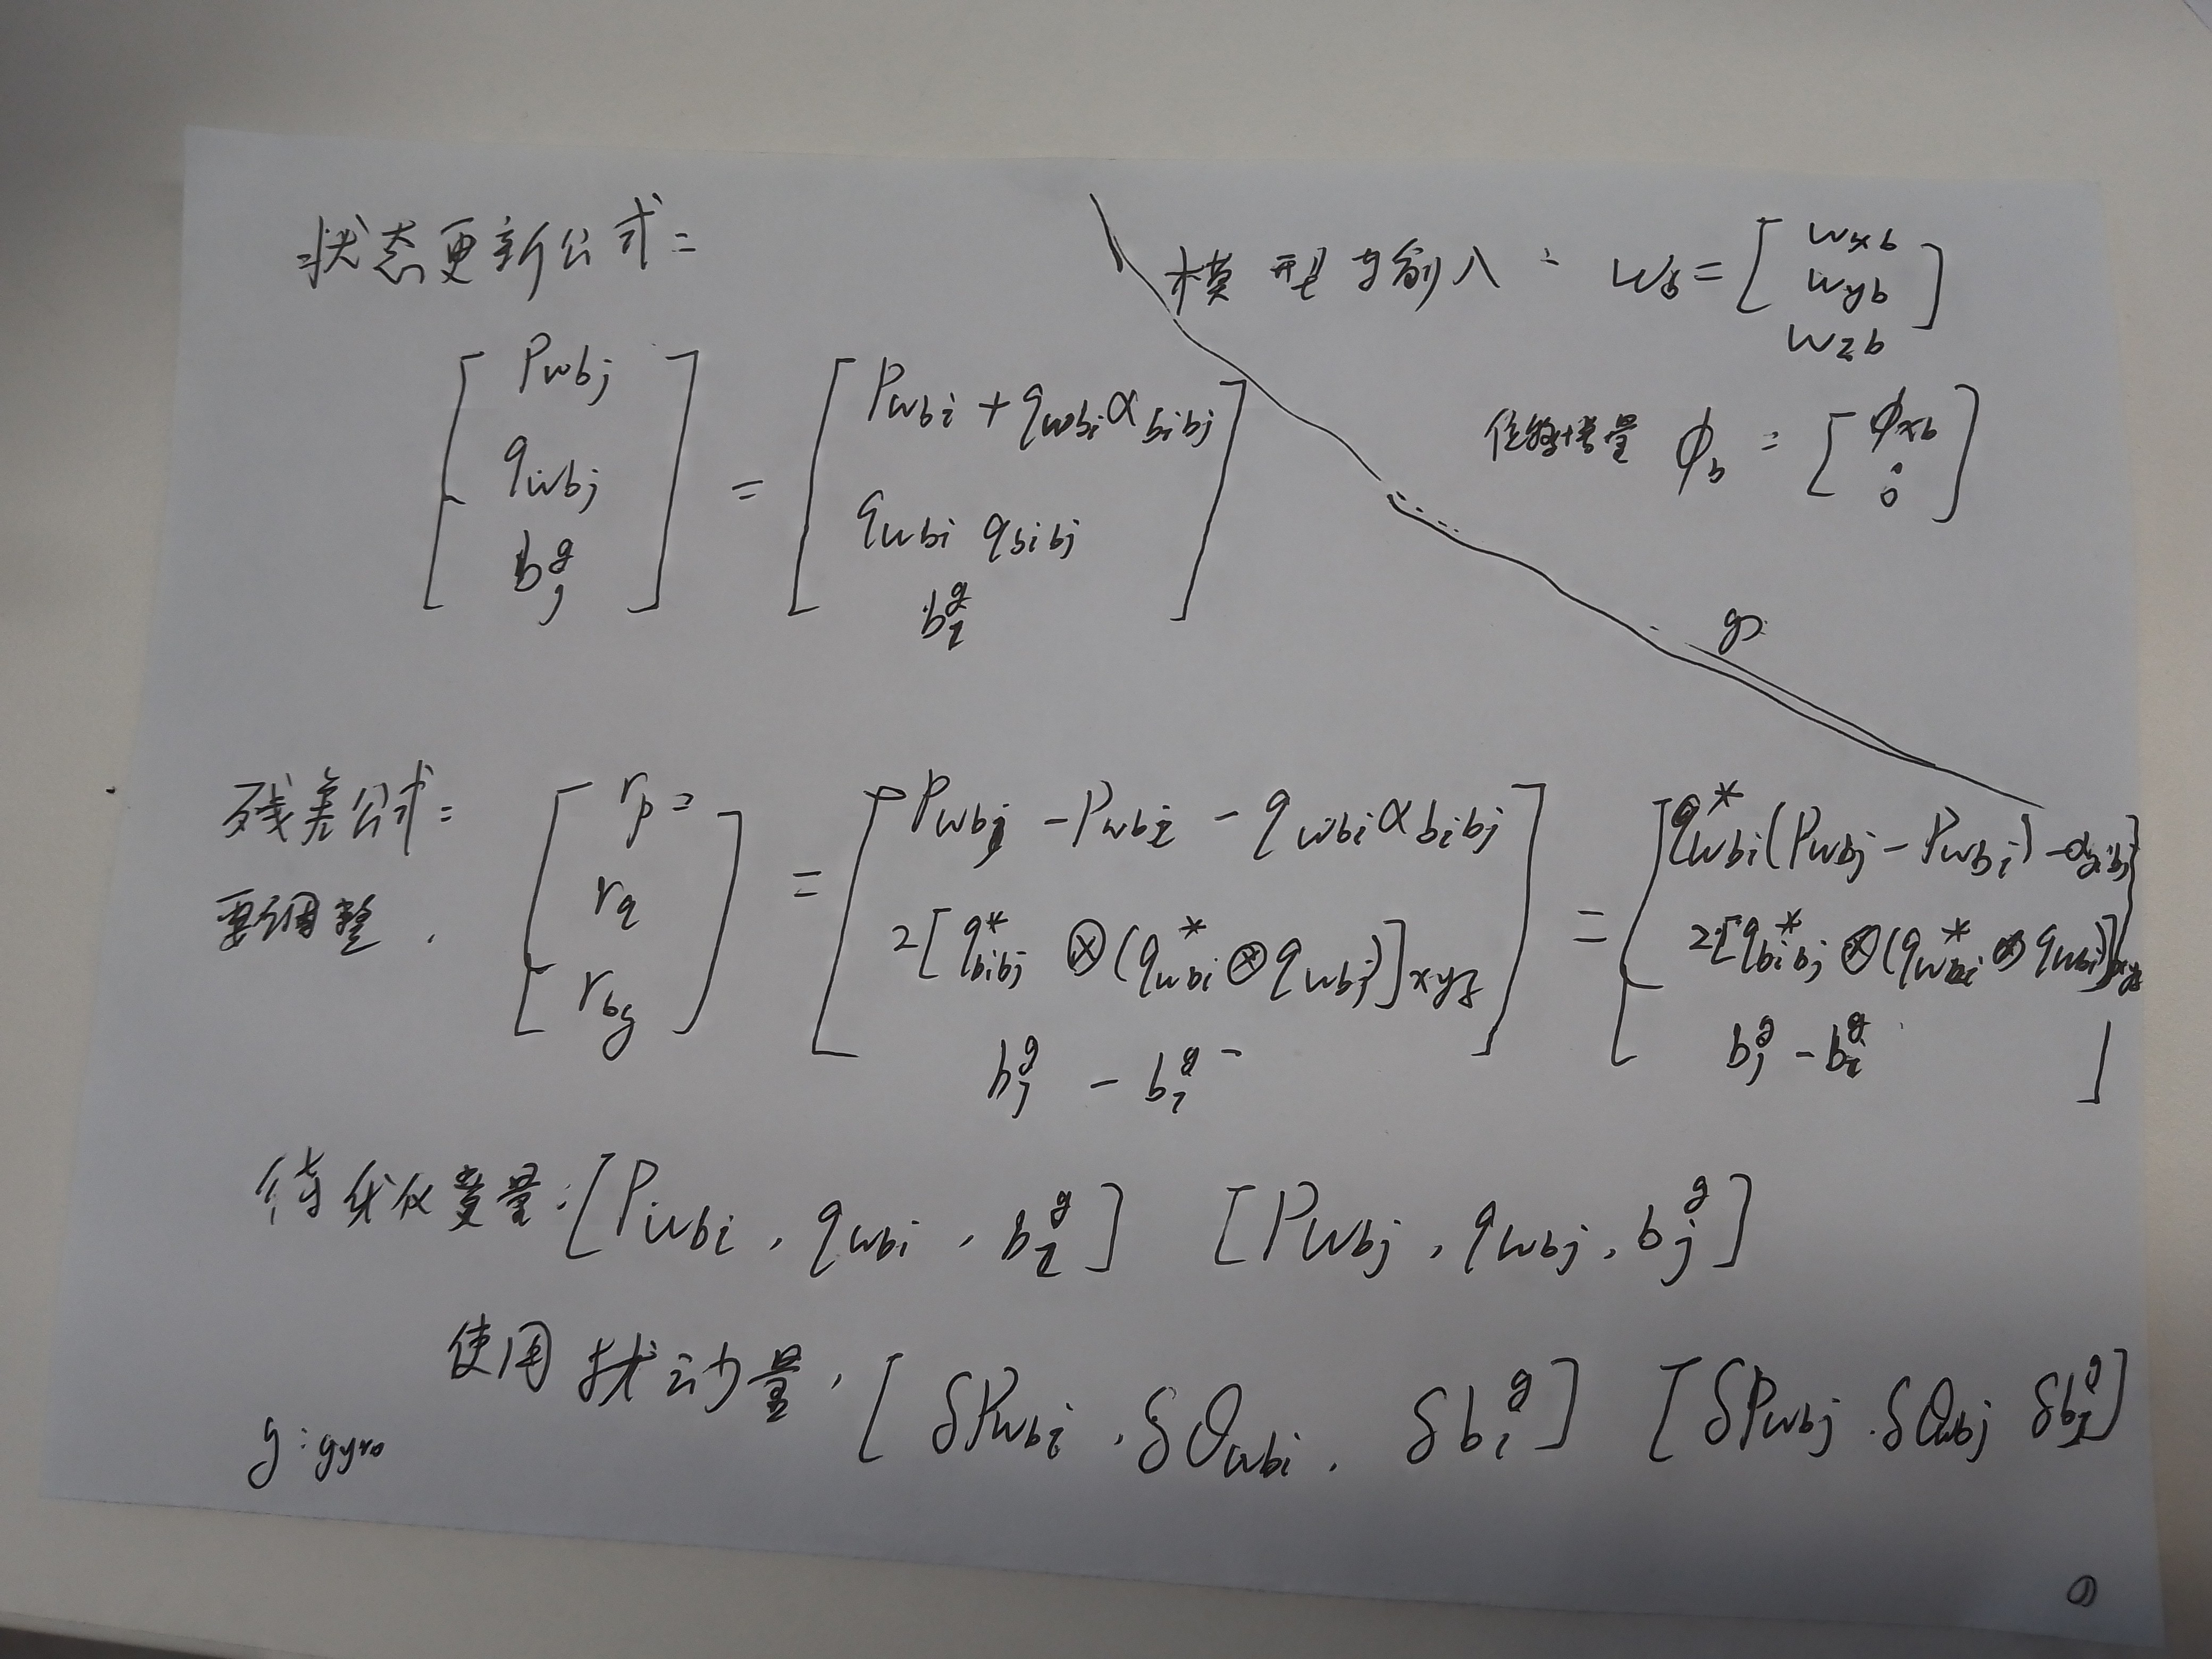 状态更新公式:
[ Pwbj
qwbj
b^g_j ] = [ Pwbi + qwbi α bibj
qwbi qbibj
b^g_i ]
模型与输入: wb = [ wxb
wyb
wzb ]
增量 ϕb = [ ϕxb
0
0 ]
残差公式:
要调整.
[ rp
rq
rbg ] = [ Pwbj - Pwbi - qwbi α bibj
2[ q*bibj ⊗ (q*wbi ⊗ qwbj) ]xyz
b^g_j - b^g_i ] = [ q*wbi (Pwbj - Pwbi) - αbibj
2[ q*bibj ⊗ (q*wbi ⊗ qwbj) ]xyz
b^g_j - b^g_i ]
待优化变量: [ Pwbi , qwbi , b^g_i ] [ Pwbj , qwbj , b^g_j ]
使用扰动量, [ δPwbi , δθwbi , δb^g_i ] [ δPwbj , δθwbj δb^g_j ]
g : gyro
①